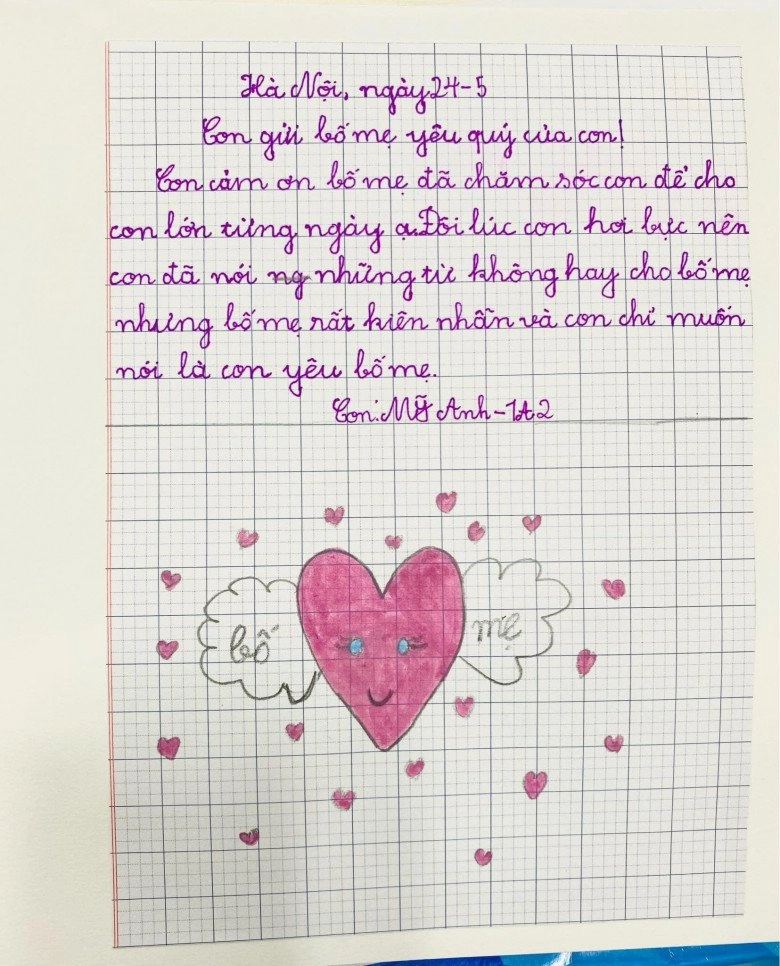 Hà Nội, ngày 24-5
Con gửi bố mẹ yêu quý của con!
Con cảm ơn bố mẹ đã chăm sóc con để cho
con lớn từng ngày ạ. Đôi lúc con hơi bực nên
con đã nói ng những từ không hay cho bố mẹ
nhưng bố mẹ rất kiên nhẫn và con chỉ muốn
nói là con yêu bố mẹ.
Con: Mỹ Anh - 1A2
bố
mẹ